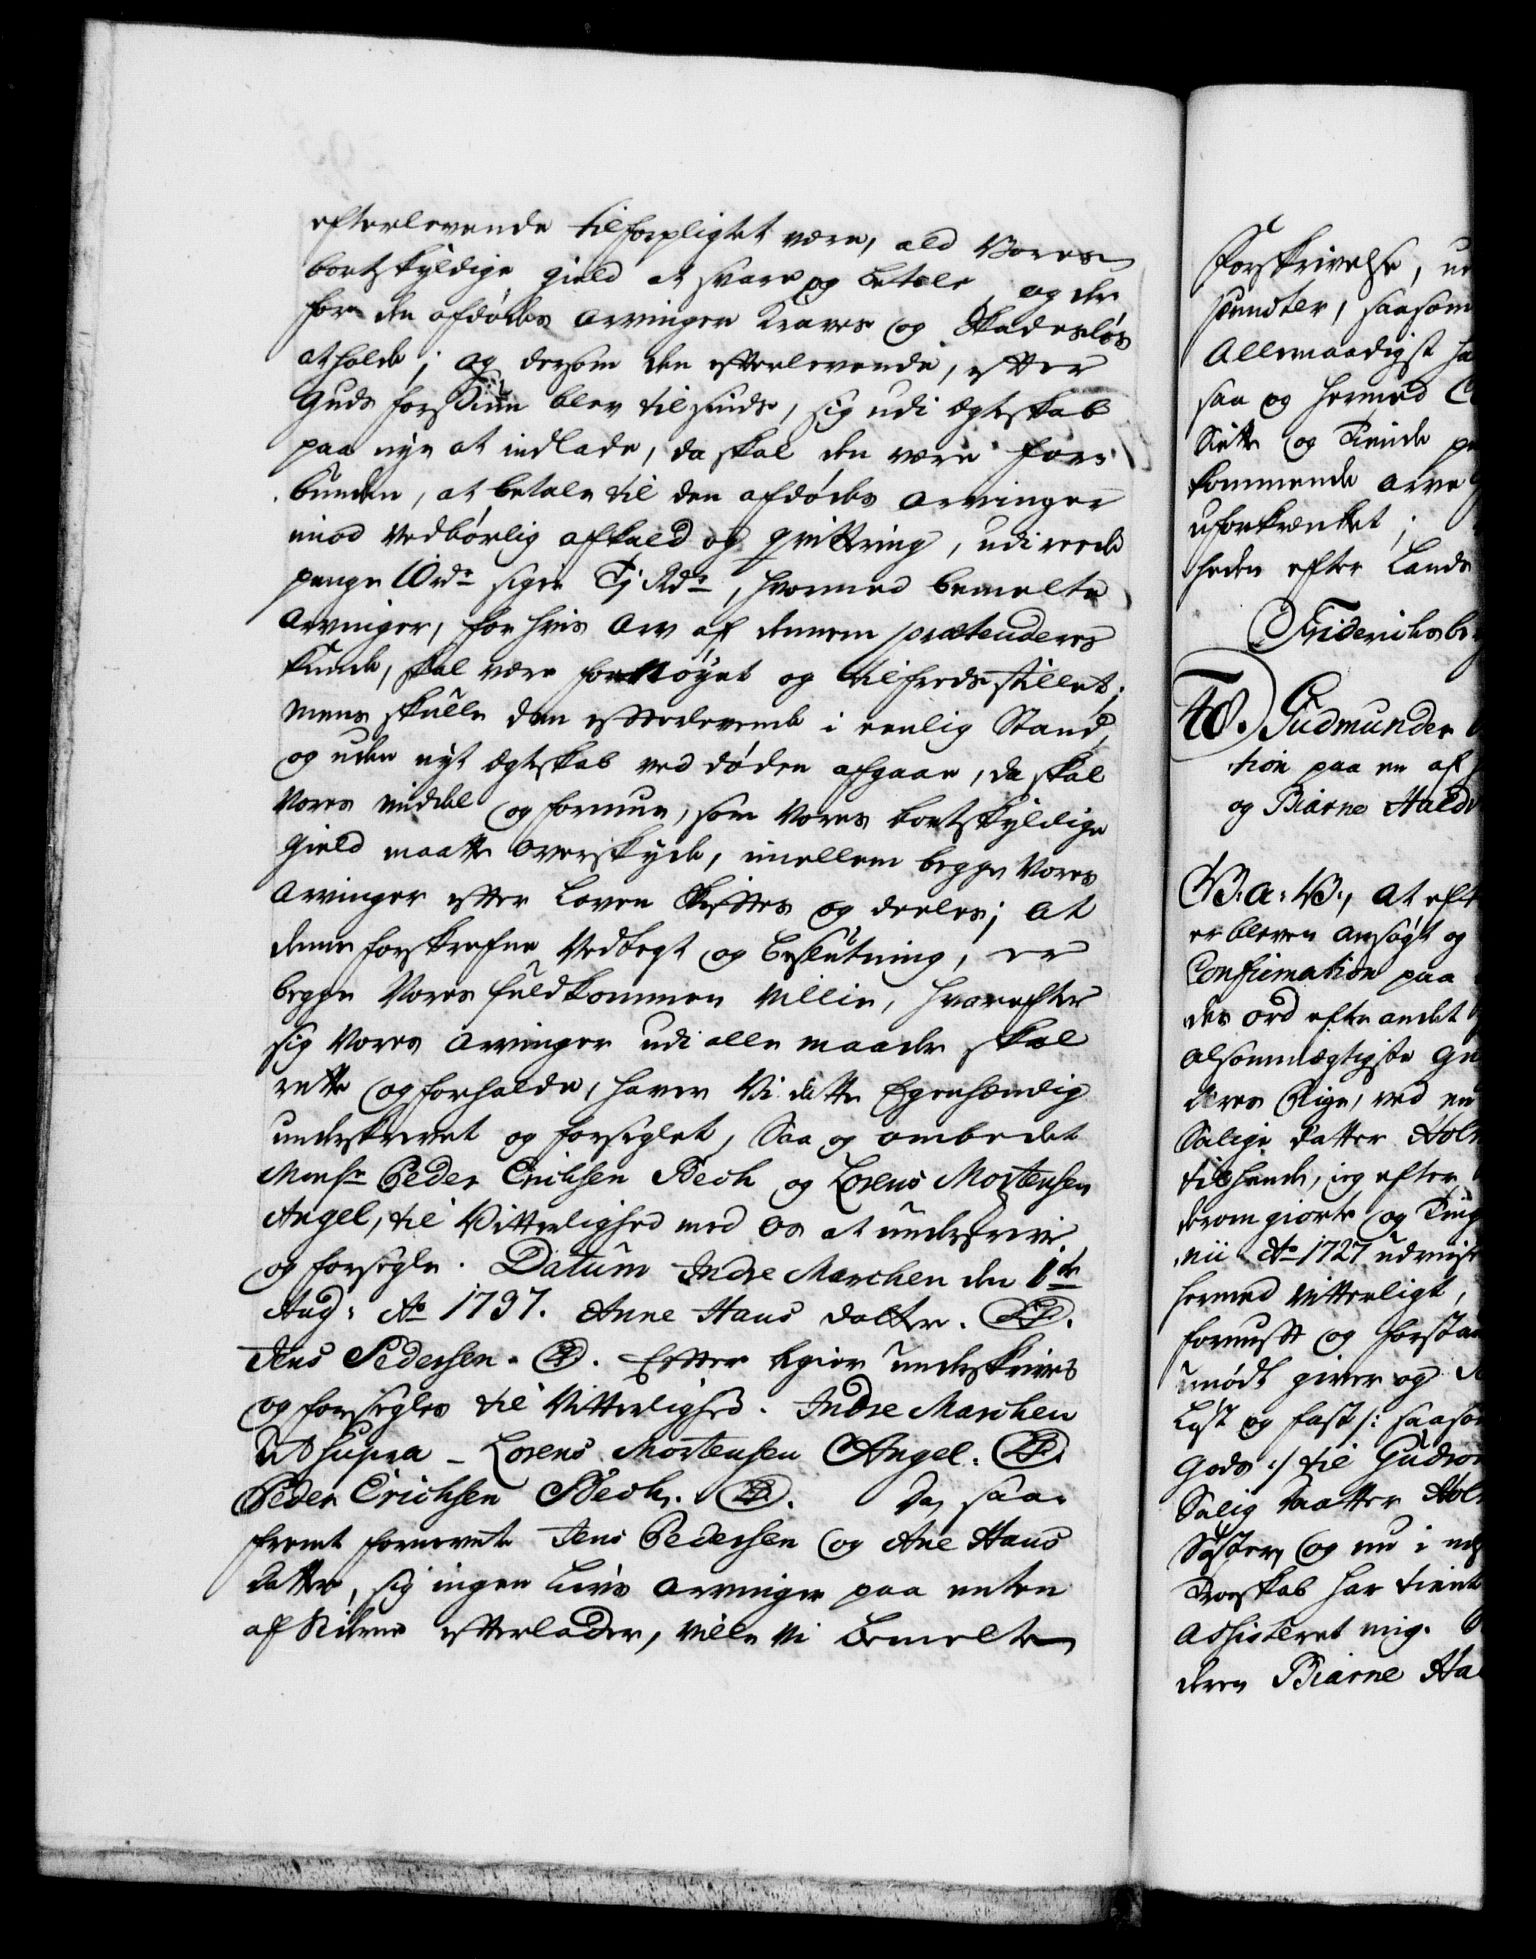 efterlevende tilforpligtet være, ald Vores
bortskyldige gield at svare og betale, og der
for den afdødes arvinger kraves og skadesløs
at holde; og dersom den efterlevende, efter
Guds forsiun blev tilsinds, sig udi ægteskab
paa nye at indlade, da skal den være for-
bunden, at betale til den afdødes arvinger
imod vedbørlig afkald og qvittring, udi reede
penge 10rdr siger Tj Rdr, hvormed bemelte
arvinger, for hvis arv af dennem prætenderes
kunde, skal være fornøyet og tilfredsstillet;
mens skulle den efterlevende i eenlig Stand,
og uden nyt ægteskab ved døden afgaae, da skal
Vores middel og formue, som Vores bortskyldige
gield maatte overskyde, imellem begge Vores
arvinger efter Loven skiftes og deeles; at
denne forskrefne Vedtegt og beslutning, er
begge Vores fuldkommen villie, hvorefter
sig Vores arvinger udi alle maader skal
rette og forholde, haver Vi dette Egenhændig
underskrevet og forseglet, saa og ombedet
Monsr Peder Erichsen Bech og Lorens Mortensen
Angel, til Vitterlighed med os at underskrive
og forsegle. Datum Indre Marchen den 1de
Aug: Ao 1737. Anne Hans datter. (LS).
Jens Pedersen. (LS). Efter begier underskrives
og forsegles til Vitterlighed. Indre Marchen
Ut supra - Lorens Mortensen Angel. (LS).
Peder Erichsen Bech. (LS). Da, saa-
fremt fornevnte Jens Pedersen og Ane Hans
datter, sig ingen livs arvinger paa enten
af Siderne efterlader, ville Vi bemelte
Forskrivelse, ud
puncter, saasom
Allernaadigst ha
saa og hermed C
Sætte og Kiende
kommende arve
uforkrenket;
heden efter Lands
Friderichsber
48. Gudmunder
tion paa en af
og Biarne Haldo
V: A: V:, at eft
er bleven ansøgt og
Confirmation paa
det ord efter andet
alsommægtigste Gu
deres Rige, ved en
Salige datter Hol
tilhende, jeg efter
derom giorte og Ting
nii Ao 1727 udvist
hermed vitterligt,
fornuft og forstan
unødt giver og
Løst og fast /: saaso
Gods :/ til Gudro
Salig daatter Hol
Søster, og nu i
Troeskab har tient
assisteret mig.
deren Biarne Ha